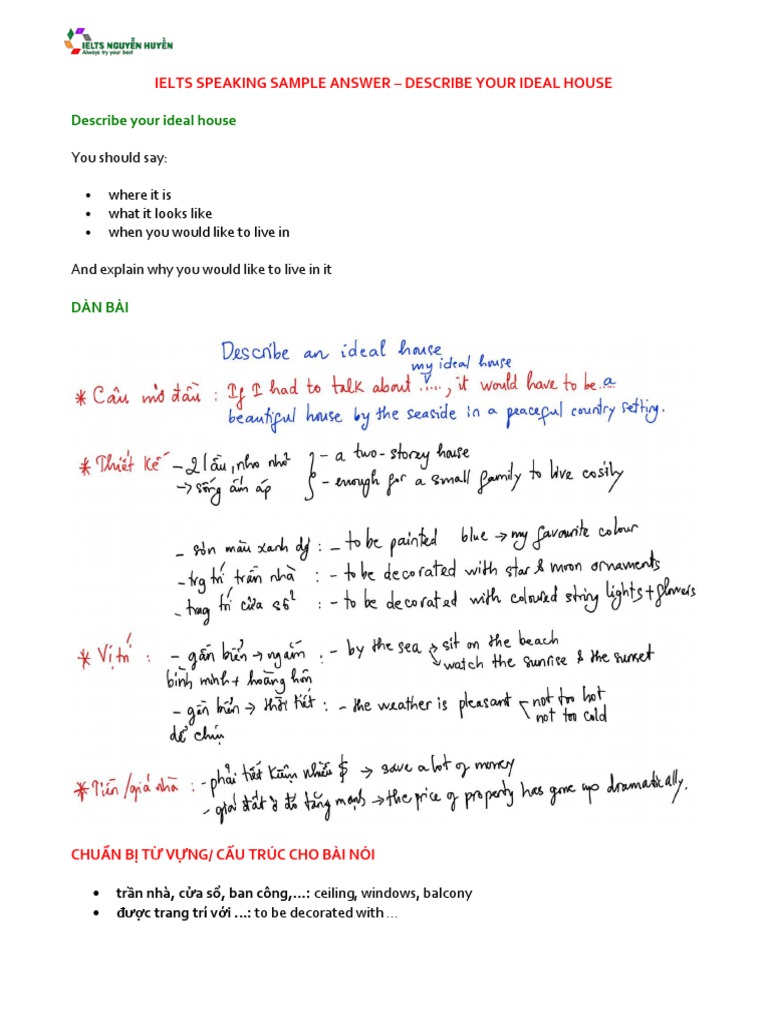 IELTS NGUYỄN HUYỀN
Always try your best
IELTS SPEAKING SAMPLE ANSWER – DESCRIBE YOUR IDEAL HOUSE
Describe your ideal house
You should say:
• where it is
• what it looks like
• when you would like to live in
And explain why you would like to live in it
DÀN BÀI
Describe an ideal house
my ideal house
* Câu mở đầu : If I had to talk about ....., it would have to be.... a
beautiful house by the seaside in a peaceful country setting.
* Thiết kế – 2 lầu, nho nhỏ – a two-storey house
→ sống ấm áp – enough for a small family to live cosily
– sơn màu xanh dg : – to be painted blue → my favourite colour
– trg trí trần nhà : – to be decorated with star & moon ornaments
– trag trí cửa sổ : – to be decorated with coloured string lights + flowers
* Vị trí : – gần biển → ngắm : – by the sea → sit on the beach
bình minh + hoàng hôn → watch the sunrise & the sunset
– gần biển → thời tiết : – the weather is pleasant not too hot
dễ chịu not too cold
* Tiền/giá nhà : – phải tiết kiệm nhiều $ → save a lot of money
– giá đất ở đó tăng mạnh → the price of property has gone up dramatically.
CHUẨN BỊ TỪ VỰNG/ CẤU TRÚC CHO BÀI NÓI
• trần nhà, cửa sổ, ban công,...: ceiling, windows, balcony
• được trang trí với ...: to be decorated with ...